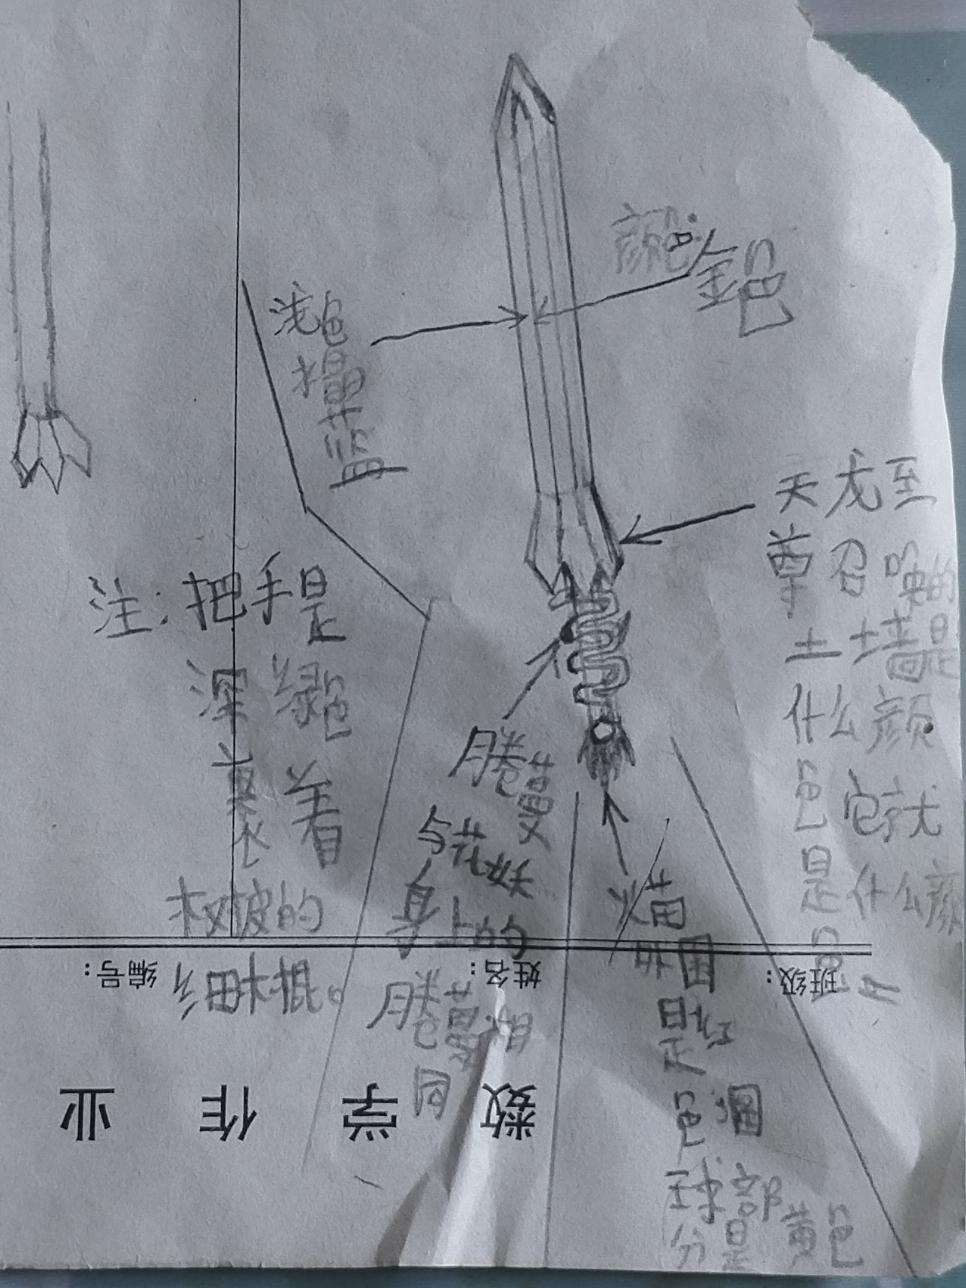 颜色:金色
浅色
水晶
蓝
天龙至
尊召唤的
土墙是
什么颜
色它就
是什么颜
色
注:把手是
深绿色
裹着
树皮的
细木棍。
腾蔓
与花妖
身上的
腾蔓相
同
火苗
外围
是红
色圆
球部
分是黄色
班级:
姓名:
编号:
数学作业